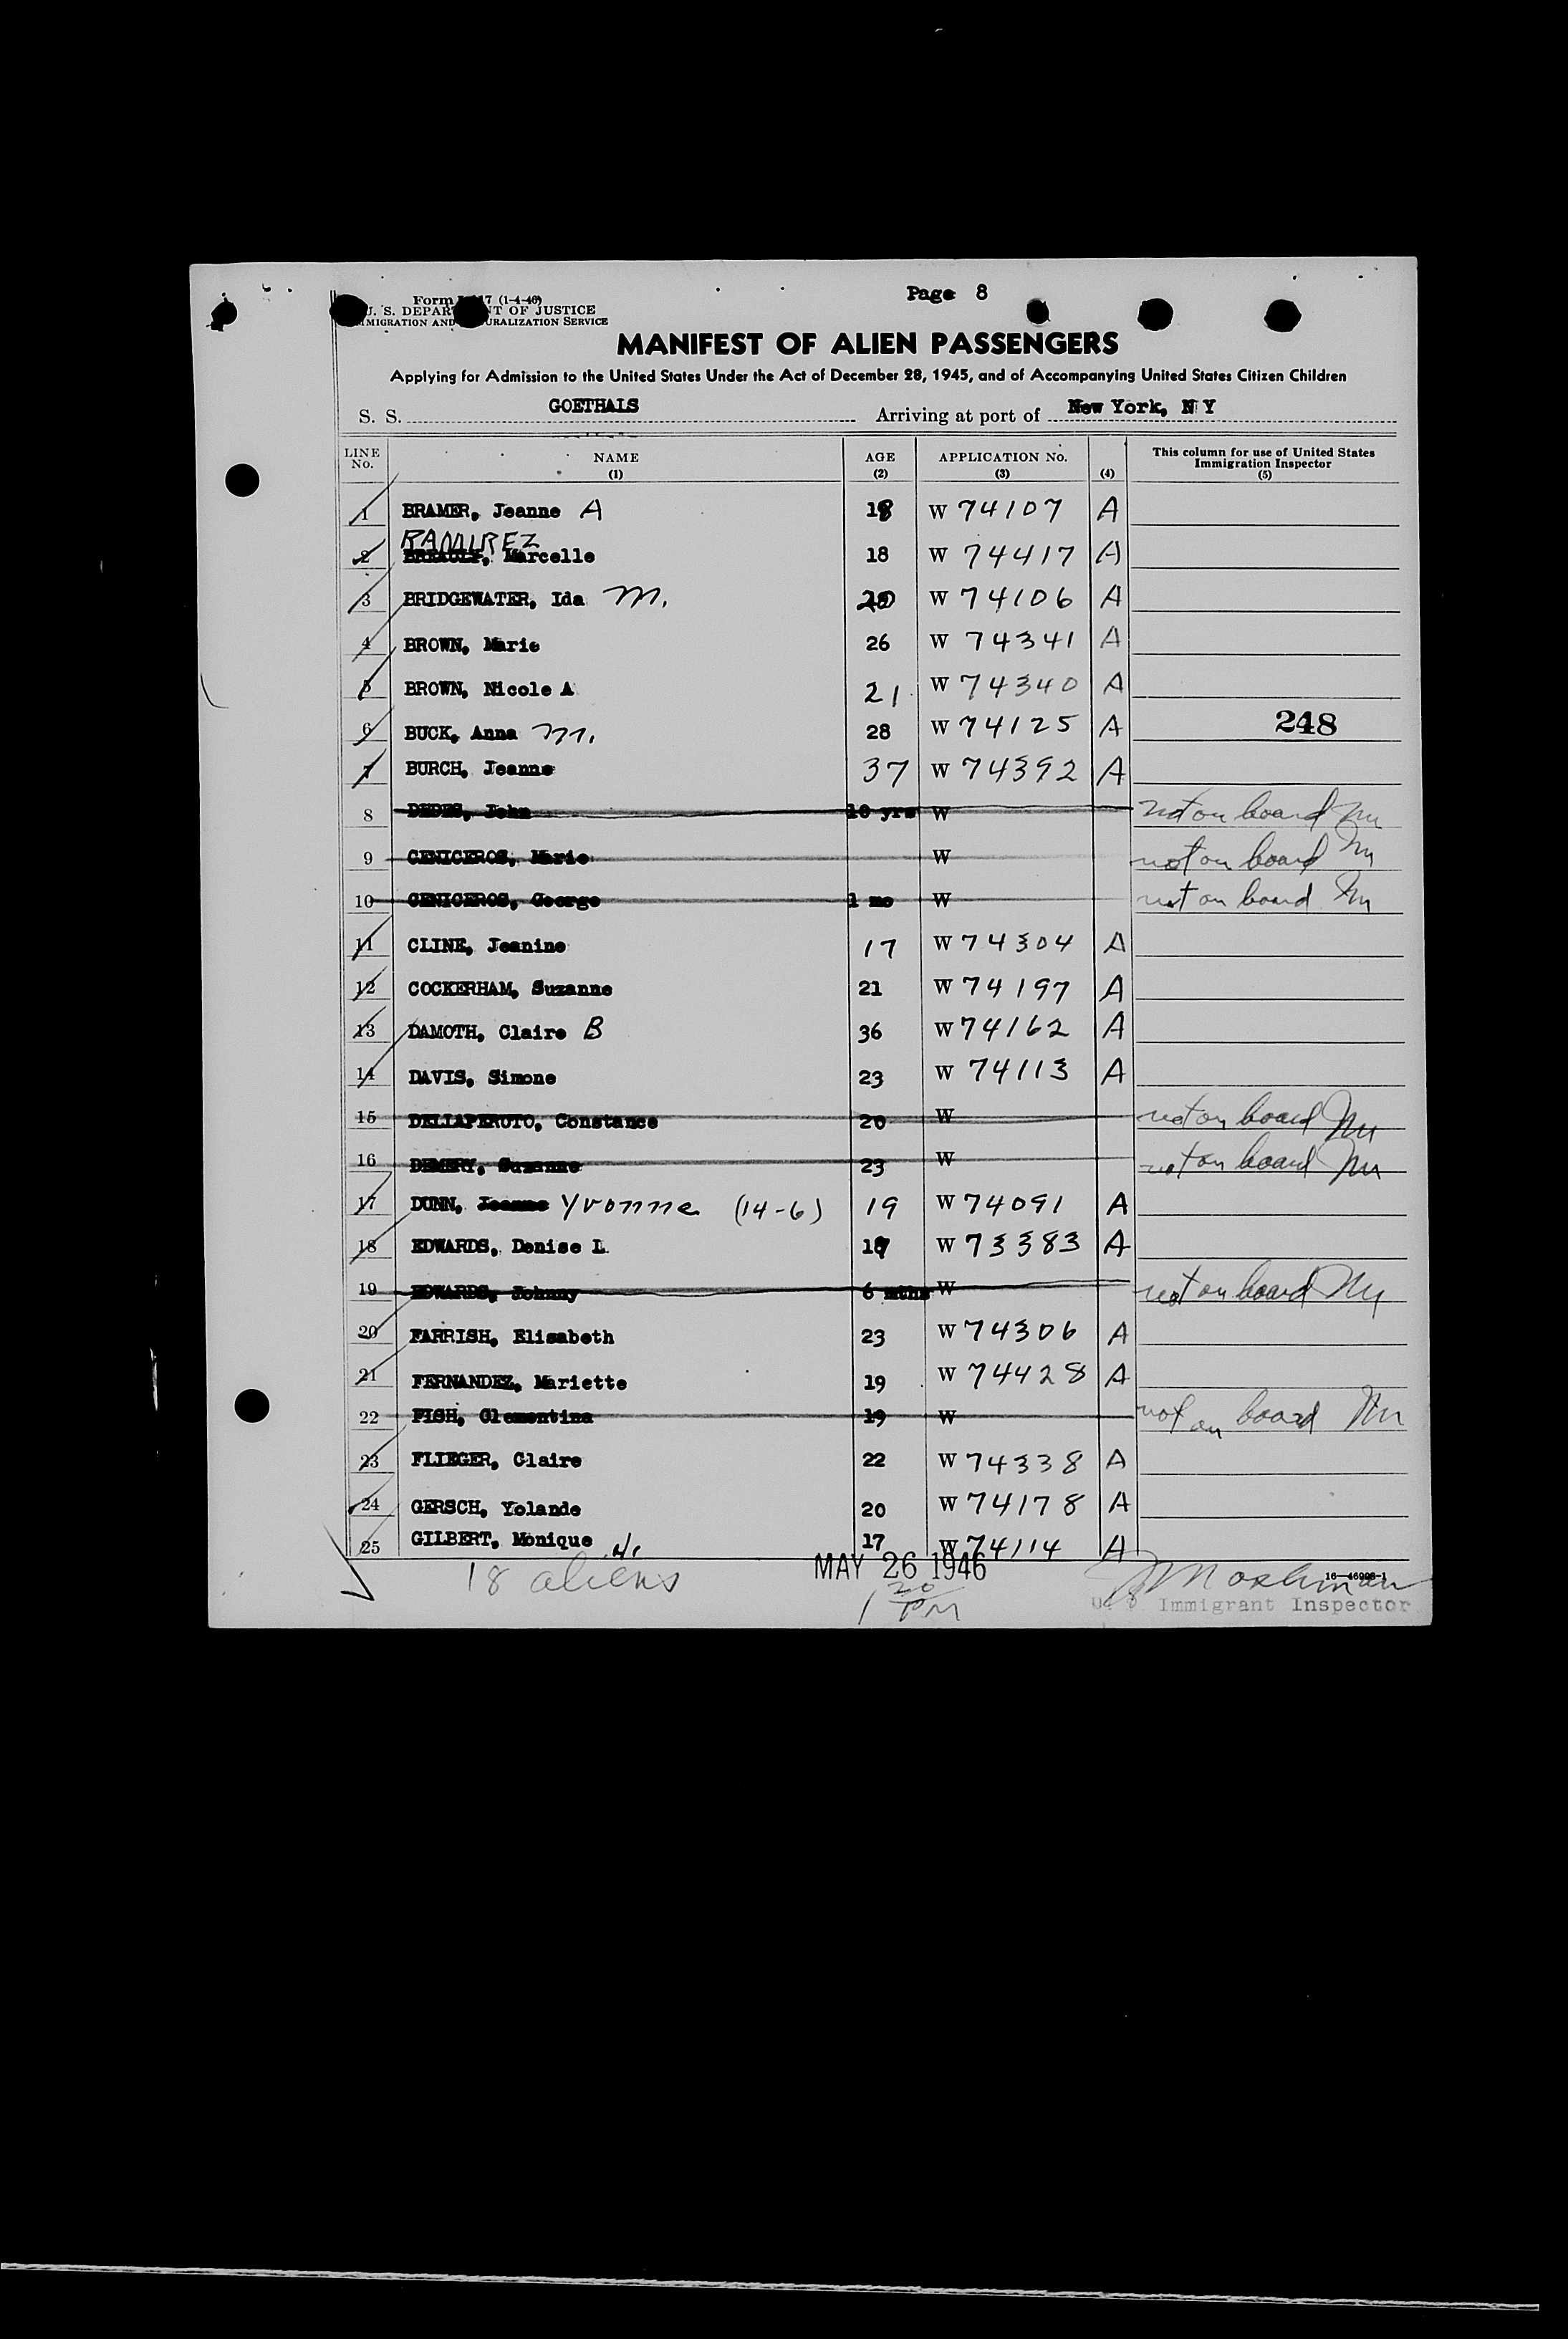 Page 8
Form 17 (1-4-46)
U. S. DEPARTMENT OF JUSTICE
IMMIGRATION AND NATURALIZATION SERVICE
MANIFEST OF ALIEN PASSENGERS
Applying for Admission to the United States Under the Act of December 28, 1945, and of Accompanying United States Citizen Children
S. S. GOETHALS Arriving at port of New York, N Y
LINE No. NAME (1) AGE (2) APPLICATION No. (3) (4) This column for use of United States Immigration Inspector (5)
1 BRAMER, Jeanne A 18 W 74107 A
RAMIREZ
2 Marcelle 18 W 74417 A
3 BRIDGEWATER, Ida M. 20 W 74106 A
4 BROWN, Marie 26 W 74341 A
5 BROWN, Nicole A 21 W 74340 A
6 BUCK, Anna M. 28 W 74125 A 248
7 BURCH, Jeanne 37 W 74392 A
8 DEDES, John 10 yrs W not on board
9 CENICEROS, Marie W not on board
10 CENICEROS, George 1 mo W not on board
11 CLINE, Jeanine 17 W 74304 A
12 COCKERHAM, Suzanne 21 W 74197 A
13 DAMOTH, Claire B 36 W 74162 A
14 DAVIS, Simone 23 W 74113 A
15 DELLAPERUTO, Constance 20 W not on board
16 DEMERY, Suzanne 23 W not on board
17 DUNN, Jeanne Yvonne (14-6) 19 W 74091 A
18 EDWARDS, Denise L 19 W 73383 A
19 EDWARDS, Johnny 6 mths W not on board
20 FARRISH, Elisabeth 23 W 74306 A
21 FERNANDEZ, Mariette 19 W 74428 A
22 FISH, Clementina 19 W not on board
23 FLIEGER, Claire 22 W 74338 A
24 GERSCH, Yolande 20 W 74178 A
25 GILBERT, Monique H. 17 W 74114 A
18 aliens MAY 26 1946
1 20 PM
16—46998-1
U. S Immigrant Inspector